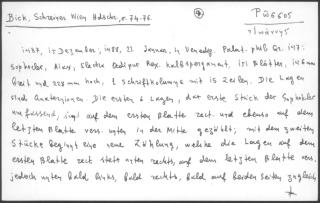 Bick, Schreiber Wien Hdschr., n. 74-76. PΩ6605
Ἰωάννης
1487, 15 Dezember, 1488, 22 Jänner, in Venedig. Palat. phil. Gr. 147:
Sophocles, Aias, Electra 151 Blätter, 146 mm
breit und 228 mm hoch, 1 Schriftkolumne mit 15 Zeilen. Die Lagen
sind Quaternionen. Die ersten 6 Lagen, das erste Stück der Sophokles
umfassend, sind auf dem ersten Blatte rect. und ebenso auf dem
letzten Blatte vers. unten in der Mitte gezählt; mit dem zweiten
Stücke beginnt eine neue Zählung, welche die Lagen auf dem
ersten Blatte rect. stets unten rechts, auf dem letzten Blatte vers.
jedoch unten bald links, bald rechts, bald auf beiden Seiten zugleich